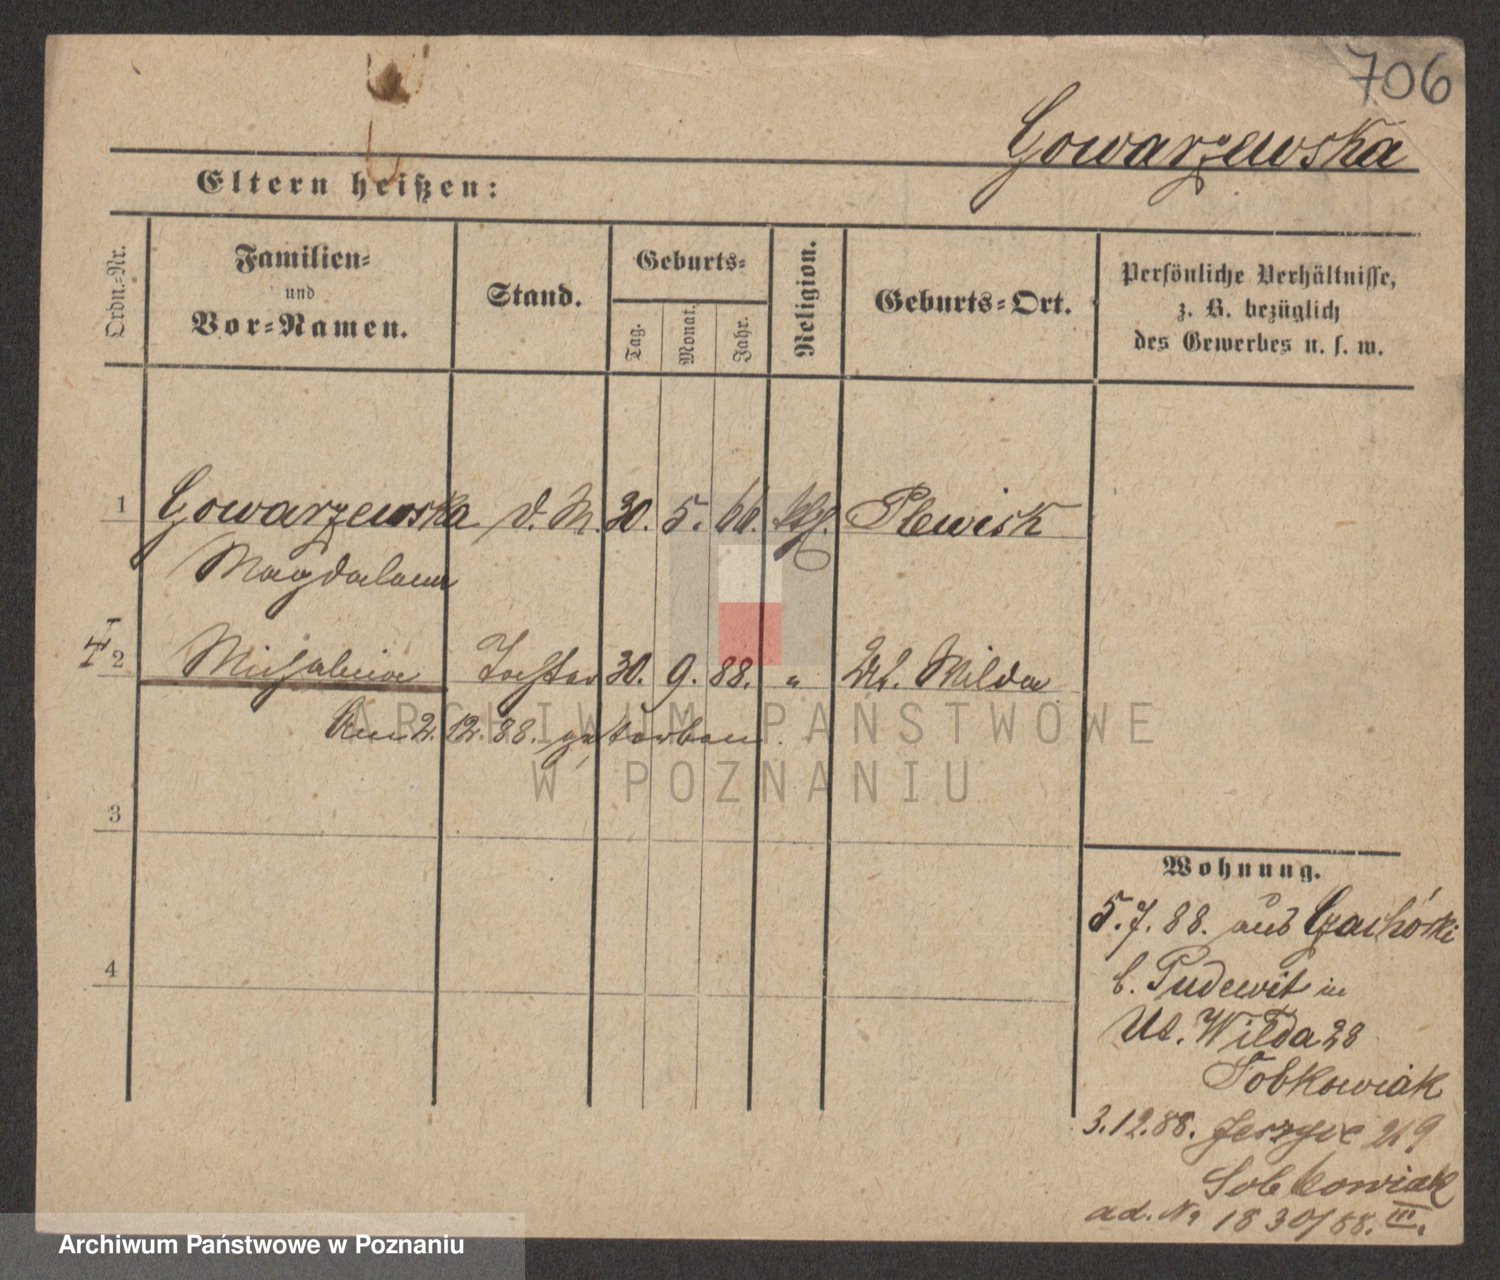 706
Gowarzewska
Eltern heißen:
Ordn.=Nr.
Familien=
und
Vor=Namen.
Stand.
Geburts=
Tag.
Monat.
Jahr.
Religion.
Geburts=Ort.
Persönliche Verhältnisse,
z. B. bezüglich
des Gewerbes u. s. w.
1 Gowarzewska d. M. 30. 5. 66. ktl. Plewisk
Magdalena
2 Michalina Tochter 30. 9. 88. " Ut. Wilda
Am 2. 12. 88. gestorben.
3
4
Wohnung.
5. 7. 88. aus Czachórki
b. Pudewitz in
Ut. Wilda 28
Sobkowiak
3. 12. 88. Jerzyce 219
Sobkowiak
ad. No 1830/88. III.
ARCHIWUM PAŃSTWOWE
W POZNANIU
Archiwum Państwowe w Poznaniu